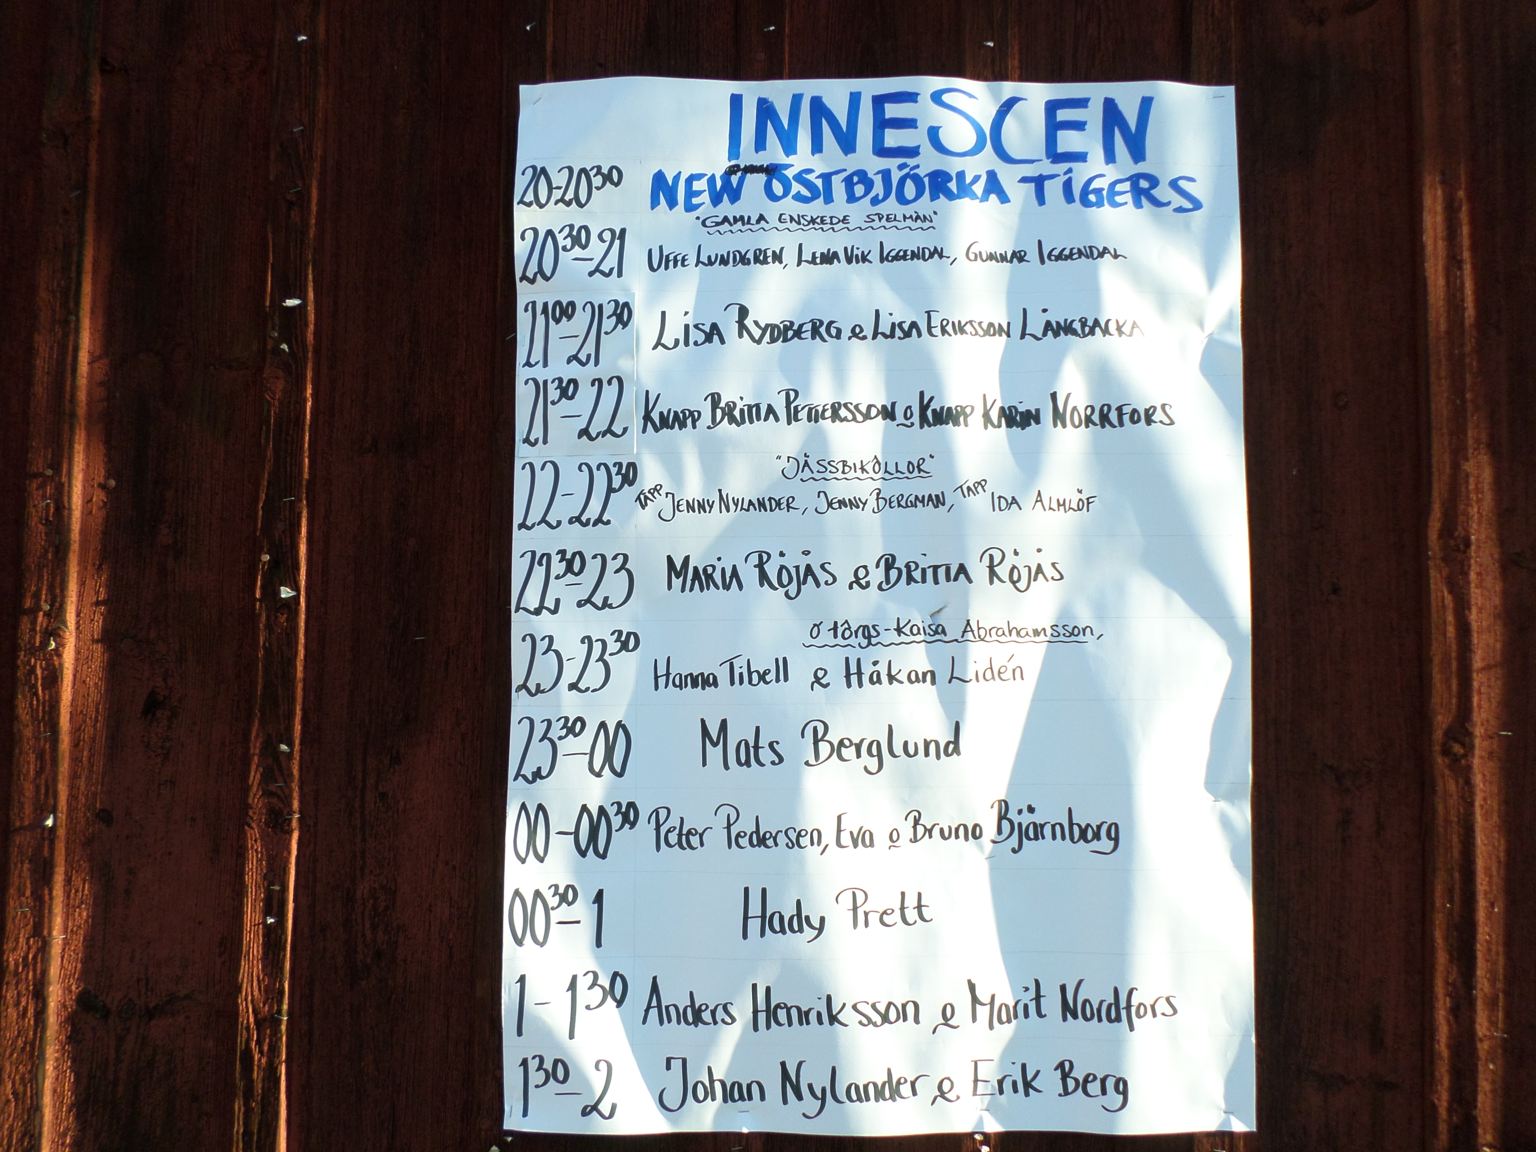 INNESCEN
20-20³⁰ NEW ÖSTBJÖRKA TIGERS
"GAMLA ENSKEDE SPELMÄN"
20³⁰-21 UFFE LUNDGREN, LENA VIK IGGENDAL, GUNNAR IGGENDAL
21⁰⁰-21³⁰ LISA RYDBERG & LISA ERIKSSON LÅNGBACKA
21³⁰-22 KNAPP BRITTA PETTERSSON o KNAPP KARIN NORRFORS
"JÄSSBIKÖLLOR"
22-22³⁰ TÄPP JENNY NYLANDER, JENNY BERGMAN, TÄPP IDA ALMLÖF
22³⁰-23 MARIA RÖJÅS & BRITTA RÖJÅS
o törgs-Kaisa Abrahamsson,
23-23³⁰ Hanna Tibell & Håkan Lidén
23³⁰-00 Mats Berglund
00-00³⁰ Peter Pedersen, Eva o Bruno Bjärnborg
00³⁰-1 Hady Prett
1-1³⁰ Anders Henriksson & Marit Nordfors
1³⁰-2 Johan Nylander & Erik Berg